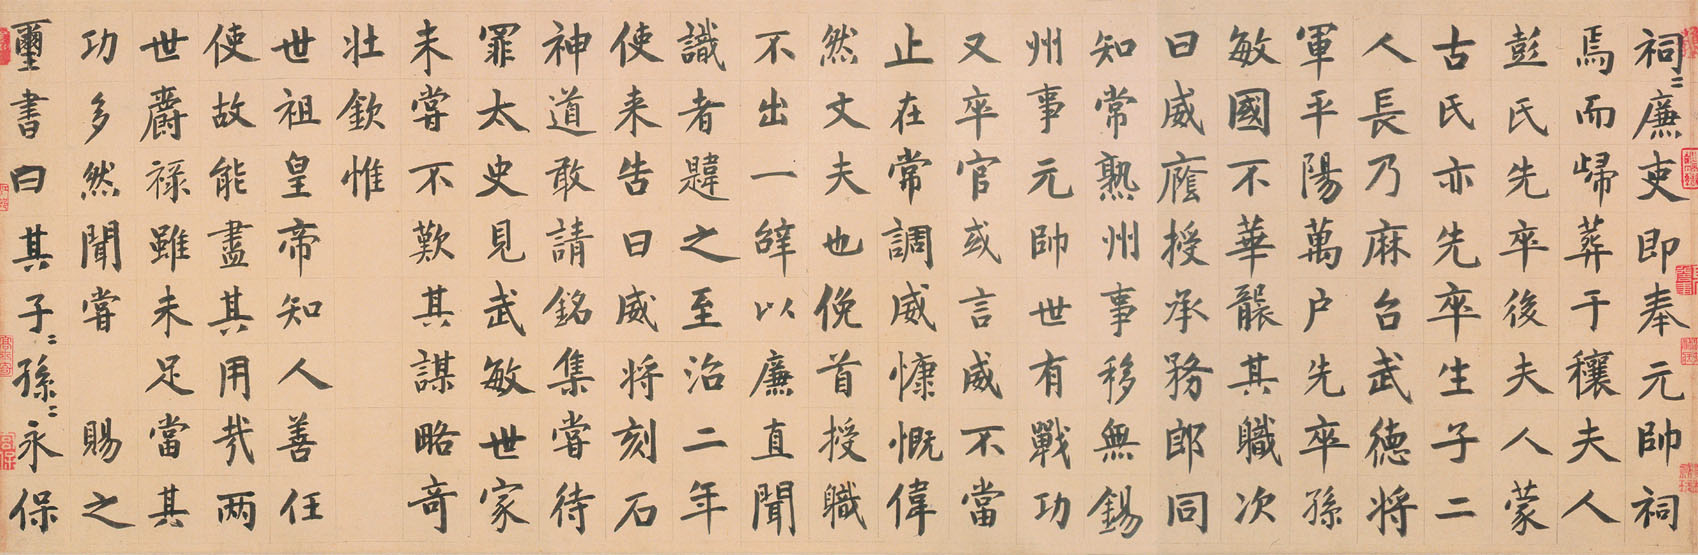 祠〻廉吏即奉元帥祠
焉而歸葬于穰夫人
彭氏先卒後夫人蒙
古氏亦先卒生子二
人長乃麻台武德將
軍平陽萬户先卒孫
敏國不華襲其職次
曰威廕授承務郎同
知常熟州事移無錫
州事元帥世有戰功
又卒官或言威不當
止在常調威慷慨偉
然丈夫也俛首授職
不出一辝以廉直聞
識者韙之至治二年
使来告曰威将刻石
神道敢請銘集嘗待
罪太史見武敏世家
未嘗不歎其謀略竒
壮欽惟
世祖皇帝知人善任
使故能盡其用㢤两
世爵禄雖未足當其
功多然聞嘗賜之
璽書曰其子〻孫〻永保